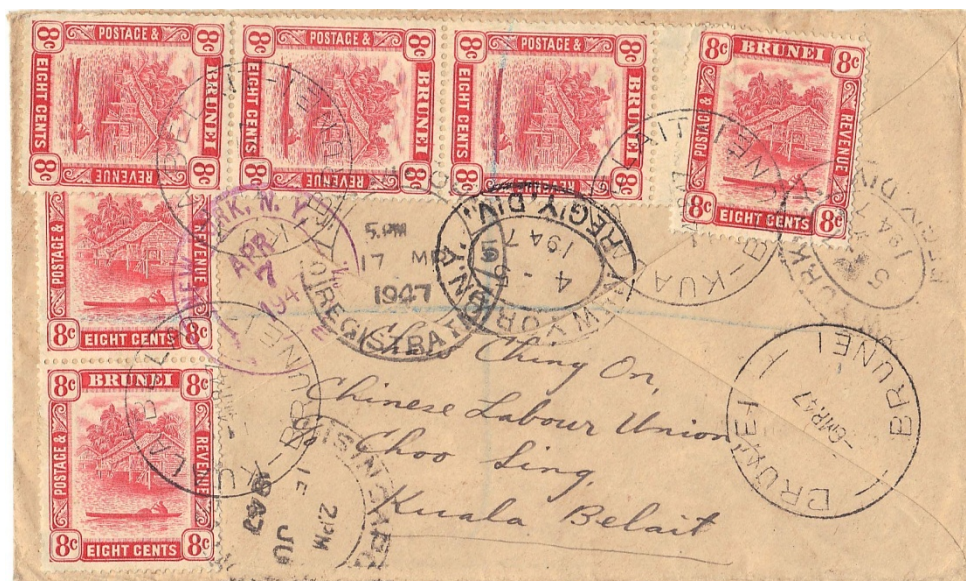 8c POSTAGE & 8c
EIGHT CENTS
BRUNEI
8c REVENUE 8c
8c POSTAGE & 8c
EIGHT CENTS
BRUNEI
8c REVENUE 8c
8c POSTAGE & 8c
EIGHT CENTS
BRUNEI
8c REVENUE 8c
8c BRUNEI 8c
POSTAGE &
REVENUE
8c EIGHT CENTS 8c
POSTAGE &
REVENUE
8c EIGHT CENTS 8c
8c BRUNEI 8c
POSTAGE &
REVENUE
8c EIGHT CENTS 8c
NEW YORK, N. Y.
APR
7
5. PM
17 MR
1947
REGISTRATION
N.Y. REG'Y. DIV.
4 - 5
1947
5
1947
REG'Y DIV
BRUNEI
-6MR47
BRUNEI
KUALA
BRUNEI
2 PM
JU
1947
Ching On,
Chinese Labour Union
Choo Ling,
Kuala Belait